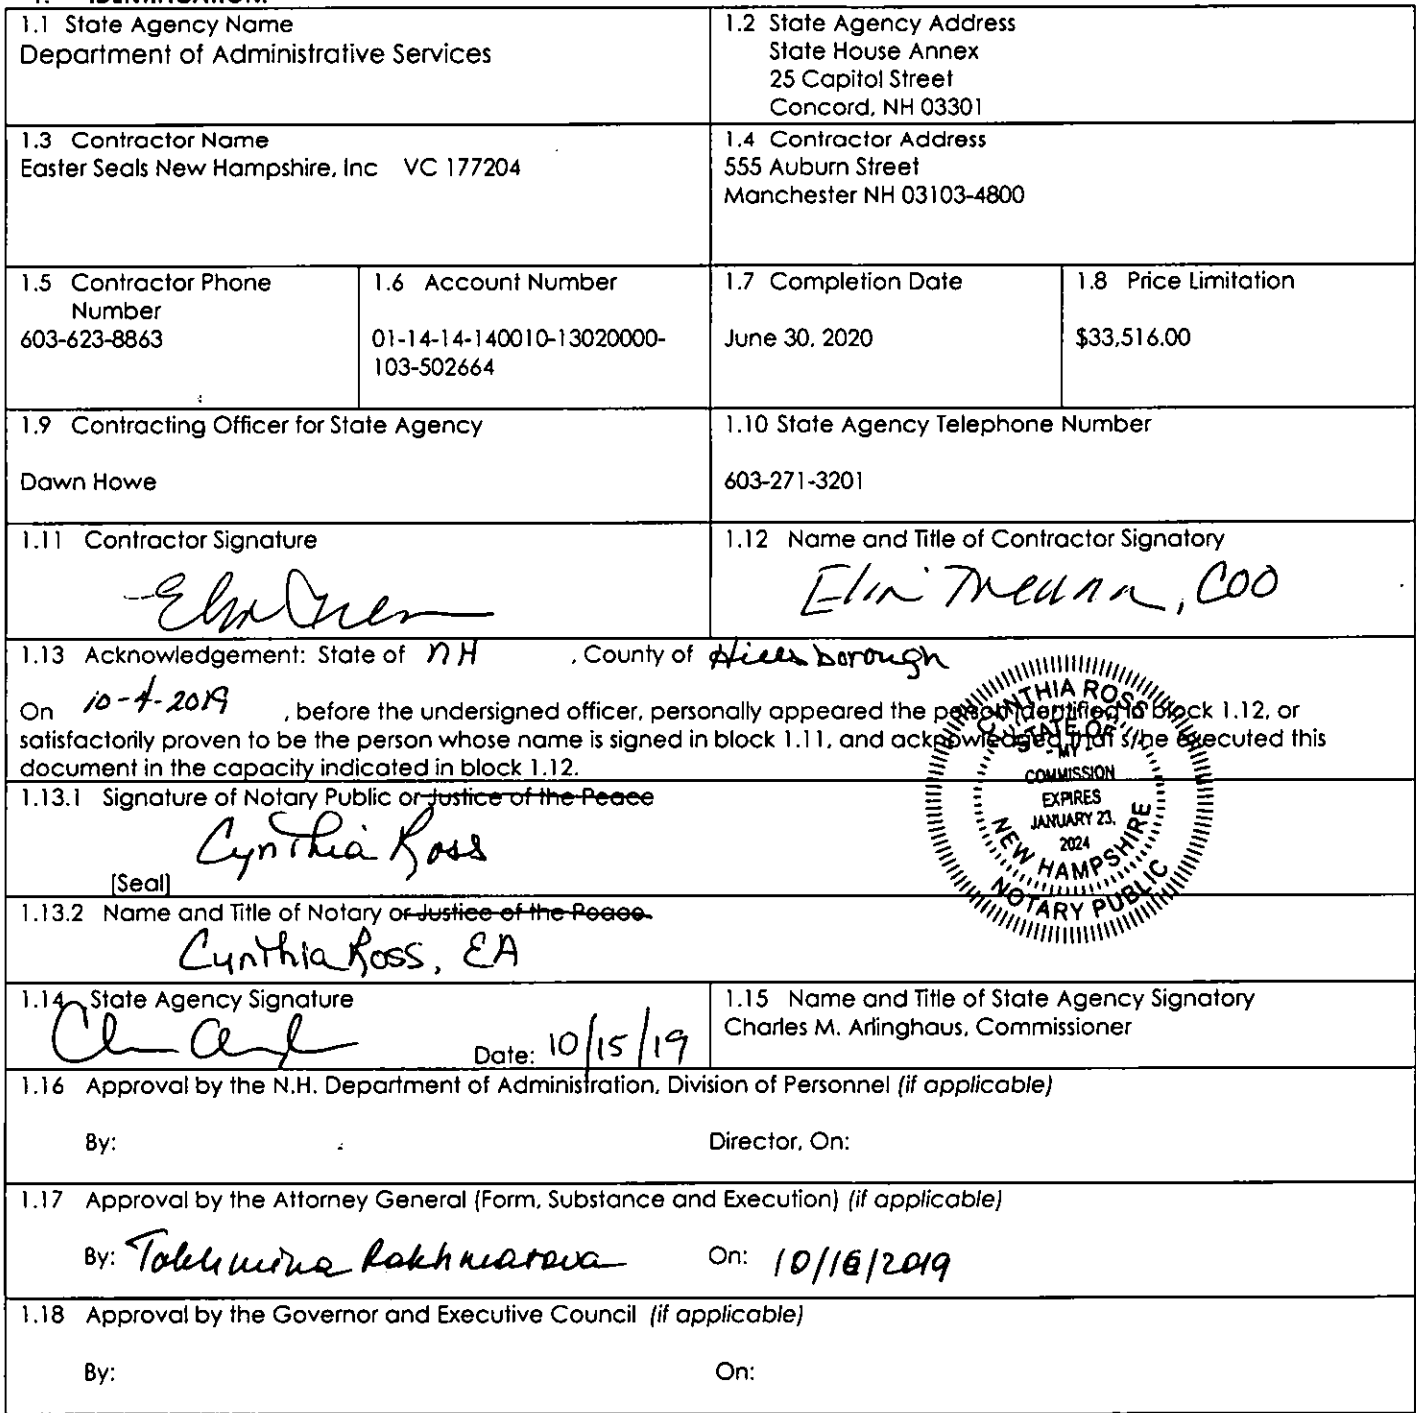 1.1 State Agency Name
Department of Administrative Services
1.2 State Agency Address
State House Annex
25 Capitol Street
Concord, NH 03301
1.3 Contractor Name
Easter Seals New Hampshire, Inc VC 177204
1.4 Contractor Address
555 Auburn Street
Manchester NH 03103-4800
1.5 Contractor Phone
Number
603-623-8863
1.6 Account Number
01-14-14-140010-13020000-
103-502664
1.7 Completion Date
June 30, 2020
1.8 Price Limitation
$33,516.00
1.9 Contracting Officer for State Agency
Dawn Howe
1.10 State Agency Telephone Number
603-271-3201
1.11 Contractor Signature
1.12 Name and Title of Contractor Signatory
Elin Treanor, COO
1.13 Acknowledgement: State of NH , County of Hillsborough
On 10-4-2019 , before the undersigned officer, personally appeared the person identified in block 1.12, or
satisfactorily proven to be the person whose name is signed in block 1.11, and acknowledged that s/he executed this
document in the capacity indicated in block 1.12.
CYNTHIA ROSS
STATE OF
MY
COMMISSION
EXPIRES
JANUARY 23,
2024
NEW HAMPSHIRE
NOTARY PUBLIC
1.13.1 Signature of Notary Public or Justice of the Peace
Cynthia Ross
[Seal]
1.13.2 Name and Title of Notary or Justice of the Peace
Cynthia Ross, EA
1.14 State Agency Signature
Date: 10/15/19
1.15 Name and Title of State Agency Signatory
Charles M. Arlinghaus, Commissioner
1.16 Approval by the N.H. Department of Administration, Division of Personnel (if applicable)
By: Director, On:
1.17 Approval by the Attorney General (Form, Substance and Execution) (if applicable)
By: Takhmina Rakhmatova On: 10/16/2019
1.18 Approval by the Governor and Executive Council (if applicable)
By: On: